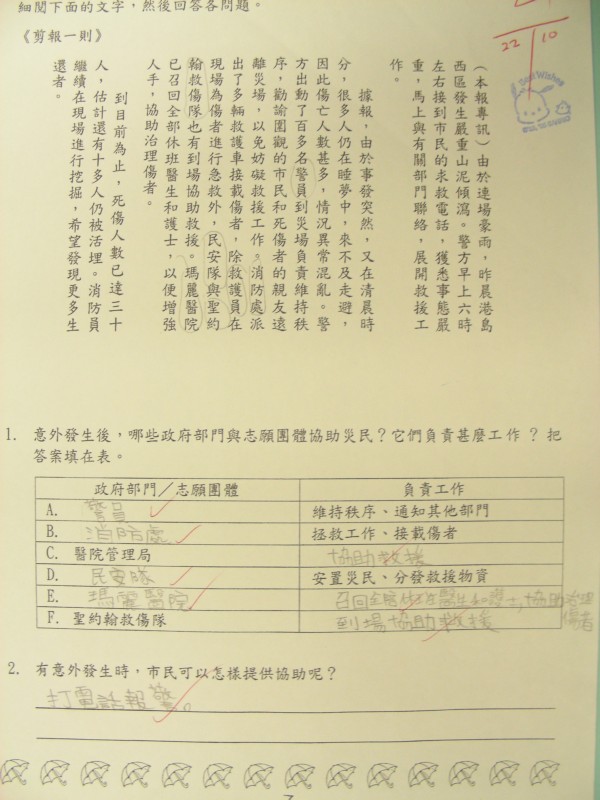 細閱下面的文字，然後回答各問題。
《剪報一則》
22
10
Best Wishes
（本報專訊）由於連場豪雨，昨晨港島
西區發生嚴重山泥傾瀉。警方早上六時
左右接到市民的求救電話，獲悉事態嚴
重，馬上與有關部門聯絡，展開救援工
作。
據報，由於事發突然，又在清晨時
分，很多人仍在睡夢中，來不及走避，
因此傷亡人數甚多，情況異常混亂。警
方出動了百多名警員到災場負責維持秩
序，勸諭圍觀的市民和死傷者的親友遠
離災場，以免妨礙救援工作。消防處派
出了多輛救護車接載傷者，除救護員在
現場為傷者進行急救外，民安隊與聖約
翰救傷隊也有到場協助救援。瑪麗醫院
已召回全部休班醫生和護士，以便增強
人手，協助治理傷者。
到目前為止，死傷人數已達三十
人，估計還有十多人仍被活埋。消防員
繼續在現場進行挖掘，希望發現更多生
還者。
1. 意外發生後，哪些政府部門與志願團體協助災民？它們負責甚麼工作？把
答案填在表。
政府部門／志願團體 負責工作
A. 警員 維持秩序、通知其他部門
B. 消防處 拯救工作、接載傷者
C. 醫院管理局 協助救援
D. 民安隊 安置災民、分發救援物資
E. 瑪麗醫院 召回全部休班醫生和護士，協助治理傷者
F. 聖約翰救傷隊 到場協助救援
2. 有意外發生時，市民可以怎樣提供協助呢？
打電話報警。
7